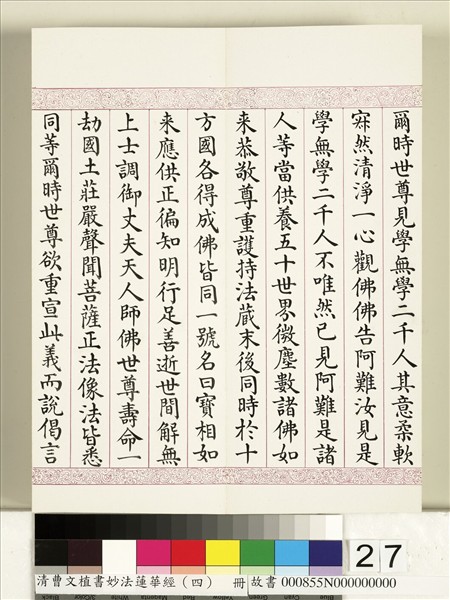 爾時世尊見學無學二千人其意柔軟
寂然清淨一心觀佛佛告阿難汝見是
學無學二千人不唯然已見阿難是諸
人等當供養五十世界微塵數諸佛如
来恭敬尊重護持法蔵末後同時於十
方國各得成佛皆同一號名曰寶相如
来應供正徧知明行足善逝世間解無
上士調御丈夫天人師佛世尊壽命一
劫國土莊嚴聲聞菩薩正法像法皆悉
同等爾時世尊欲重宣此義而說偈言
27
清曹文植書妙法蓮華經（四） 冊 故書 000855N000000000